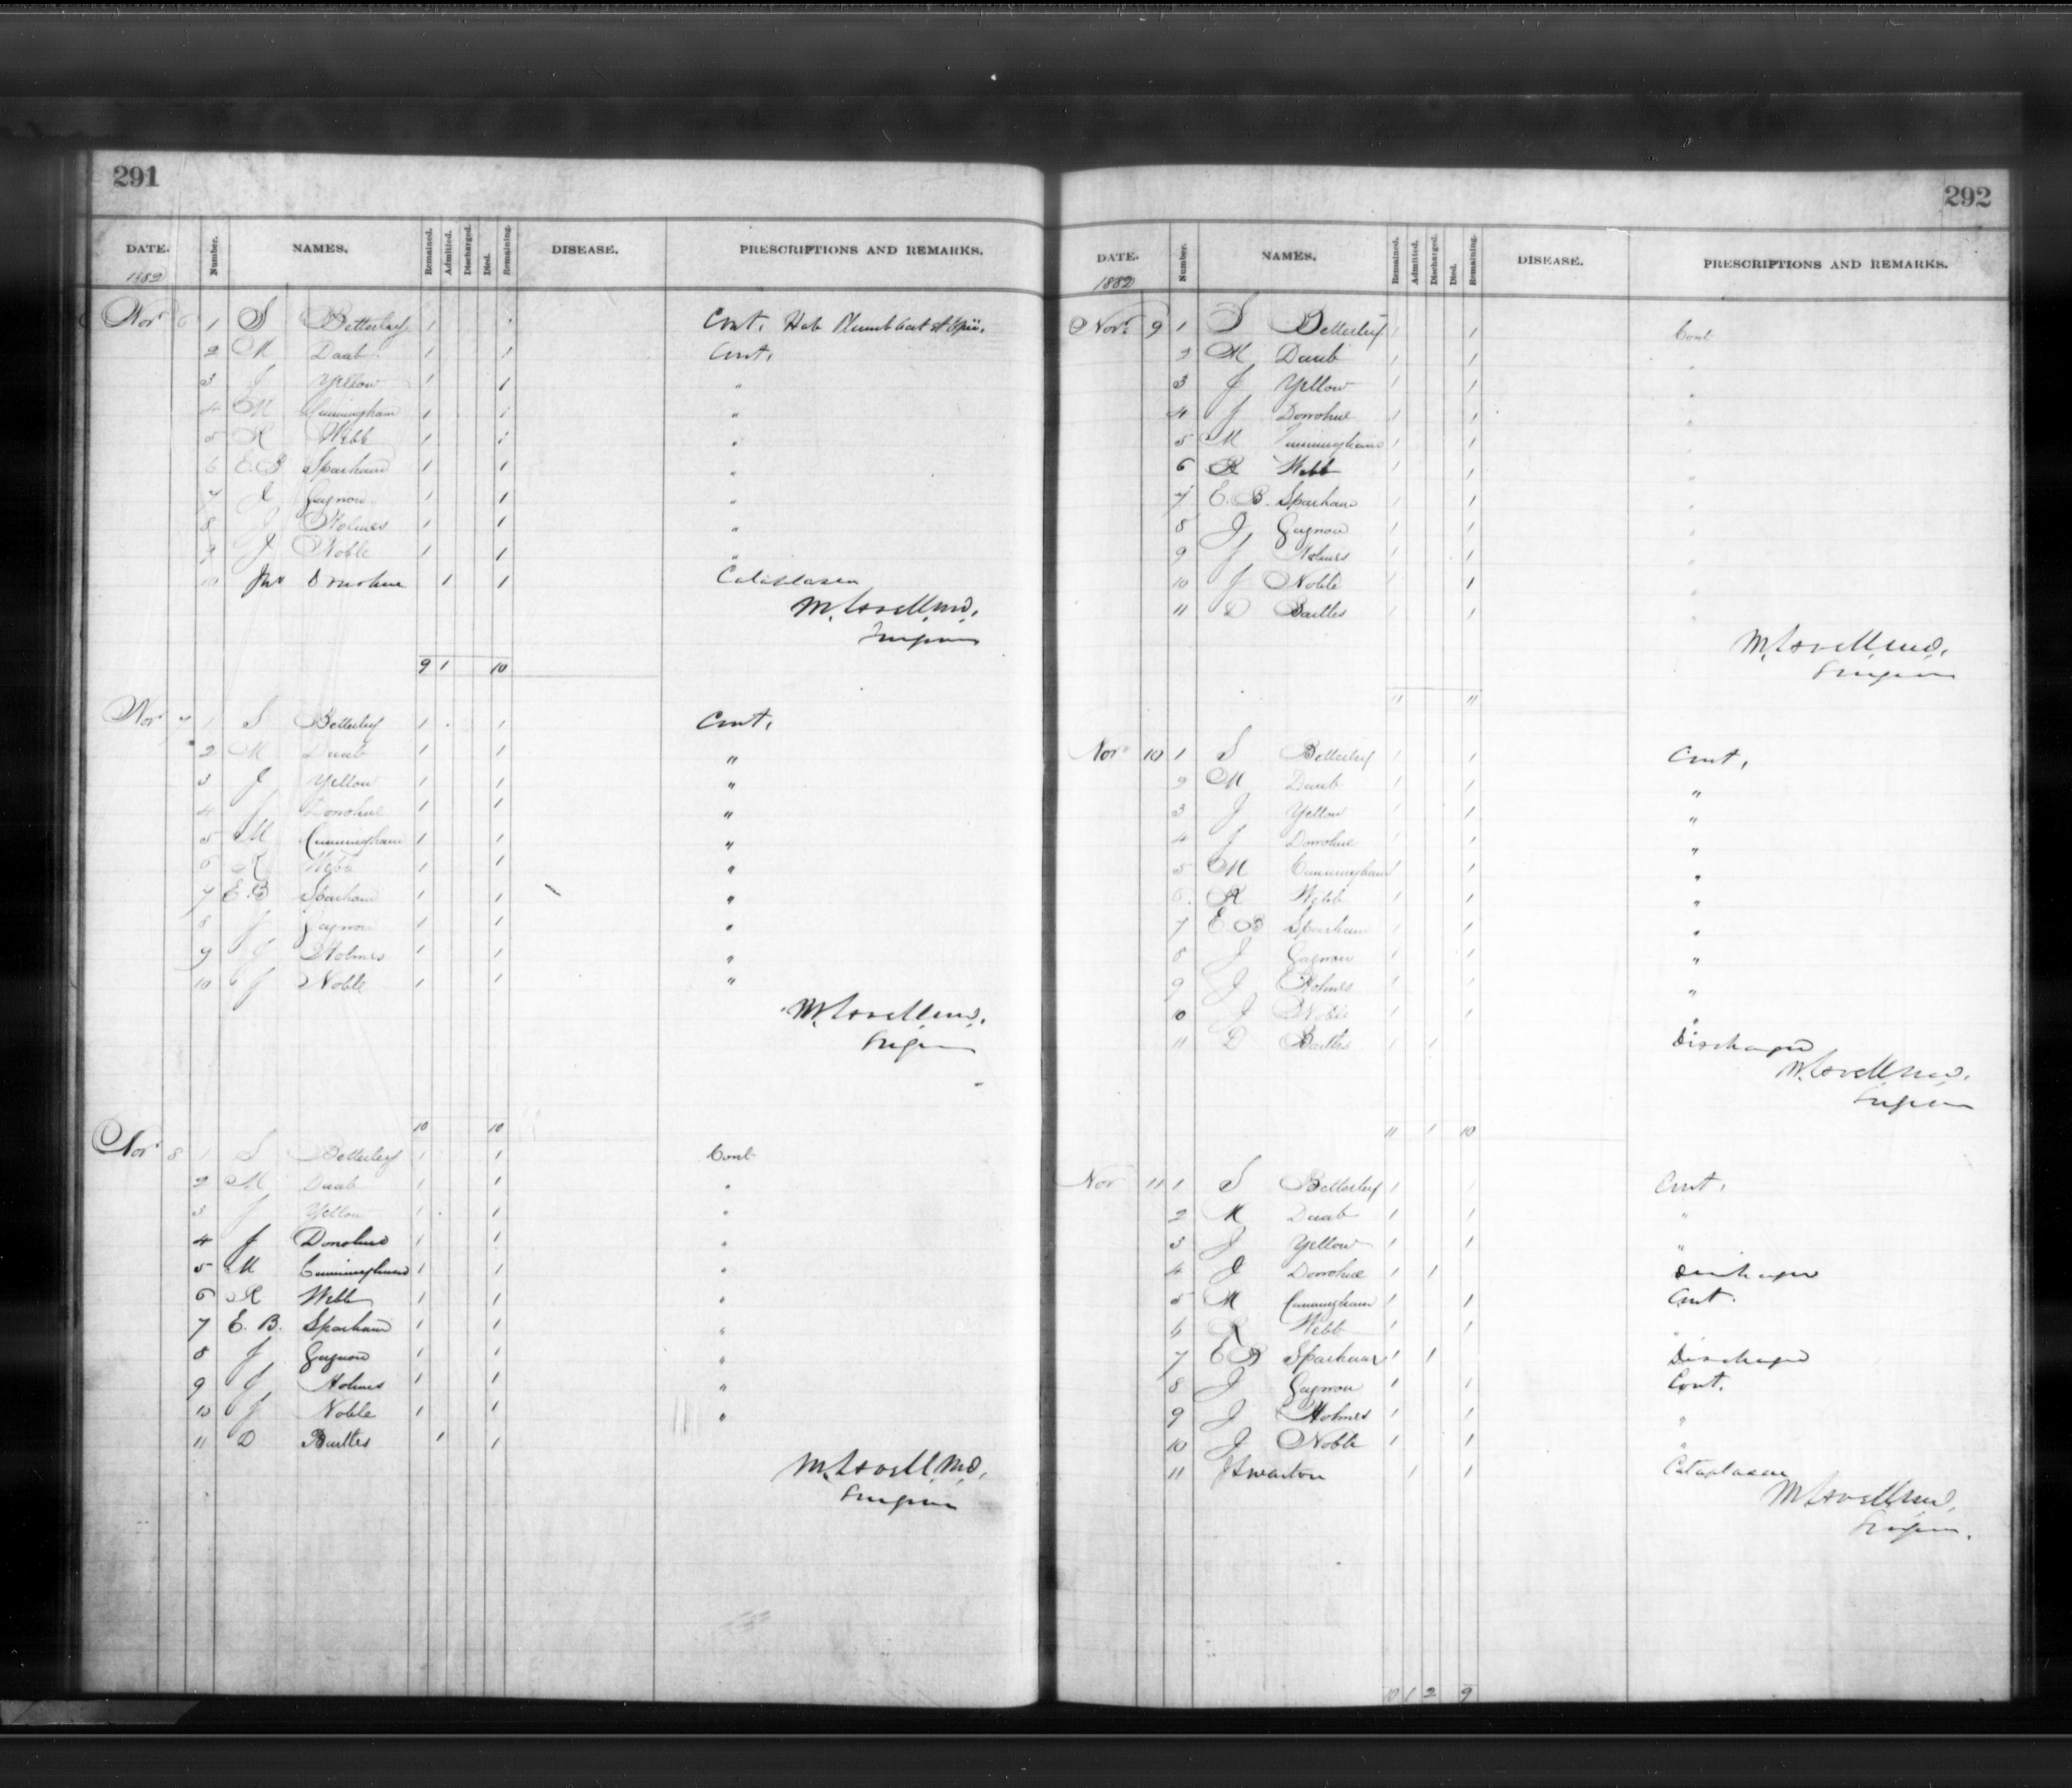 291
DATE. Number. NAMES. Remained. Admitted. Discharged. Died. Remaining. DISEASE. PRESCRIPTIONS AND REMARKS.
1882
Nov 6 1 S Betterley 1 1 Cont. Hab Plumb Acet et Opii.
2 M Daab 1 1 Cont.
3 J Yellow 1 1 "
4 M Cunningham 1 1 "
5 R Webb 1 1 "
6 E. B Sparham 1 1 "
7 J Gagnon 1 1 "
8 J Holmes 1 1 "
9 J Noble 1 1 "
10 Jno Donohue 1 1 Cataplasm
M. Lavell, M.D.
Surgeon
9 1 10
Nov 7 1 S Betterley 1 1 Cont.
2 M Daab 1 1 "
3 J Yellow 1 1 "
4 J Donohue 1 1 "
5 M Cunningham 1 1 "
6 R Webb 1 1 "
7 E. B Sparham 1 1 "
8 J Gagnon 1 1 "
9 J Holmes 1 1 "
10 J Noble 1 1 "
M. Lavell, M.D.
Surgeon
10 10
Nov 8 1 S Betterley 1 1 Cont
2 M Daab 1 1 "
3 J Yellow 1 1 "
4 J Donohue 1 1 "
5 M Cunningham 1 1 "
6 R Webb 1 1 "
7 E. B. Sparham 1 1 "
8 J Gagnon 1 1 "
9 J Holmes 1 1 "
10 J Noble 1 1 "
11 D Bartles 1 1
M. Lavell, M.D.
Surgeon
292
DATE. Number. NAMES. Remained. Admitted. Discharged. Died. Remaining. DISEASE. PRESCRIPTIONS AND REMARKS.
1882
Nov. 9 1 S Betterley 1 1 Cont
2 M Daab 1 1 "
3 J Yellow 1 1 "
4 J Donohue 1 1 "
5 M Cunningham 1 1 "
6 R Webb 1 1 "
7 E. B. Sparham 1 1 "
8 J Gagnon 1 1 "
9 J Holmes 1 1 "
10 J Noble 1 1 "
11 D Bartles 1 1 "
M. Lavell, M.D.
Surgeon
11 11
Nov 10 1 S Betterley 1 1 Cont.
2 M Daab 1 1 "
3 J Yellow 1 1 "
4 J Donohue 1 1 "
5 M Cunningham 1 1 "
6 R Webb 1 1 "
7 E. B Sparham 1 1 "
8 J Gagnon 1 1 "
9 J Holmes 1 1 "
10 J Noble 1 1 "
11 D Bartles 1 1 Discharged
M. Lavell, M.D.
Surgeon
11 1 10
Nov 11 1 S Betterley 1 1 Cont.
2 M Daab 1 1 "
3 J Yellow 1 1 "
4 J Donohue 1 1 Discharged
5 M Cunningham 1 1 Cont.
6 R Webb 1 1 "
7 E B Sparham 1 1 Discharged
8 J Gagnon 1 1 Cont.
9 J Holmes 1 1 "
10 J Noble 1 1 "
11 1 1 Cataplasm
M. Lavell, M.D.
Surgeon.
10 1 2 9